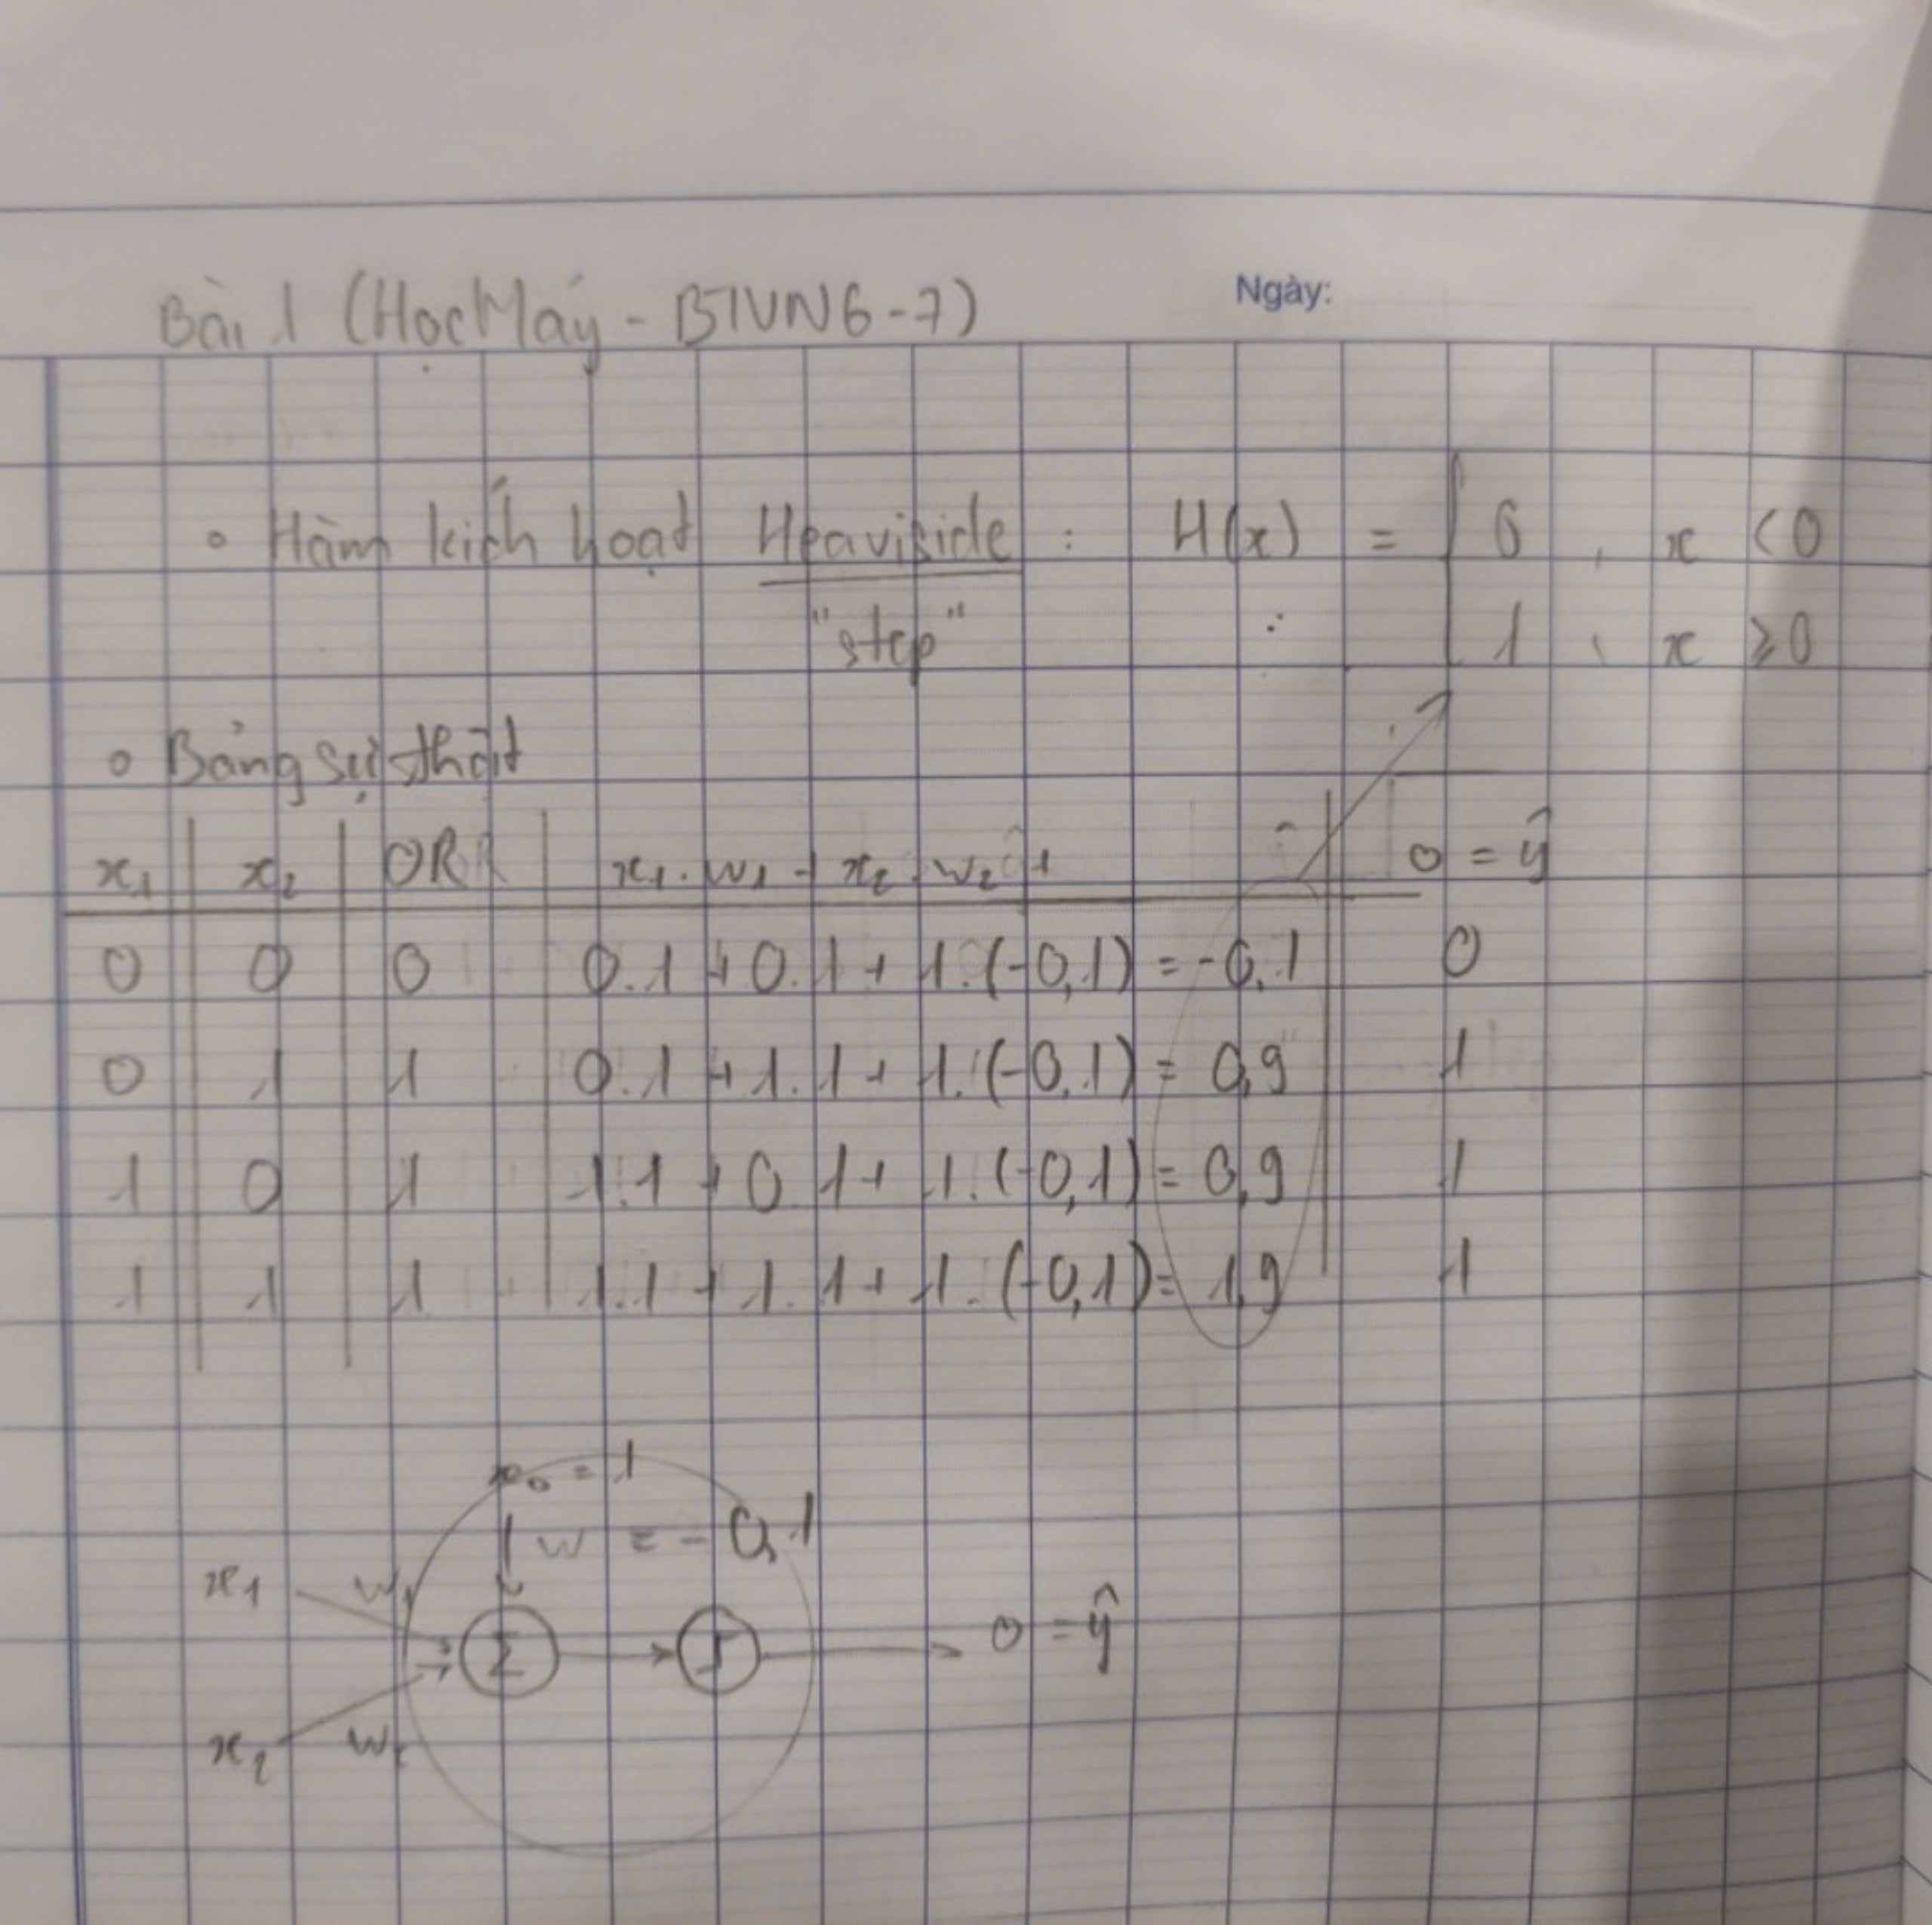 Bài 1 (Học Máy - BTVN6-7)
Ngày:
Hàm kích hoạt Heaviside : H(x) = { 0 , x < 0
"step" 1 , x ≥ 0
Bảng sự thật
x₁ | x₂ | OR | x₁.w₁ + x₂.w₂ + | o = ŷ
0 | 0 | 0 | 0.1 + 0.1 + 1.(-0,1) = -0,1 | 0
0 | 1 | 1 | 0.1 + 1.1 + 1.(-0,1) = 0,9 | 1
1 | 0 | 1 | 1.1 + 0.1 + 1.(-0,1) = 0,9 | 1
1 | 1 | 1 | 1.1 + 1.1 + 1.(-0,1) = 1,9 | 1
x₀ = 1
w = -0,1
x₁ w₁
Σ o = ŷ
x₂ w₂